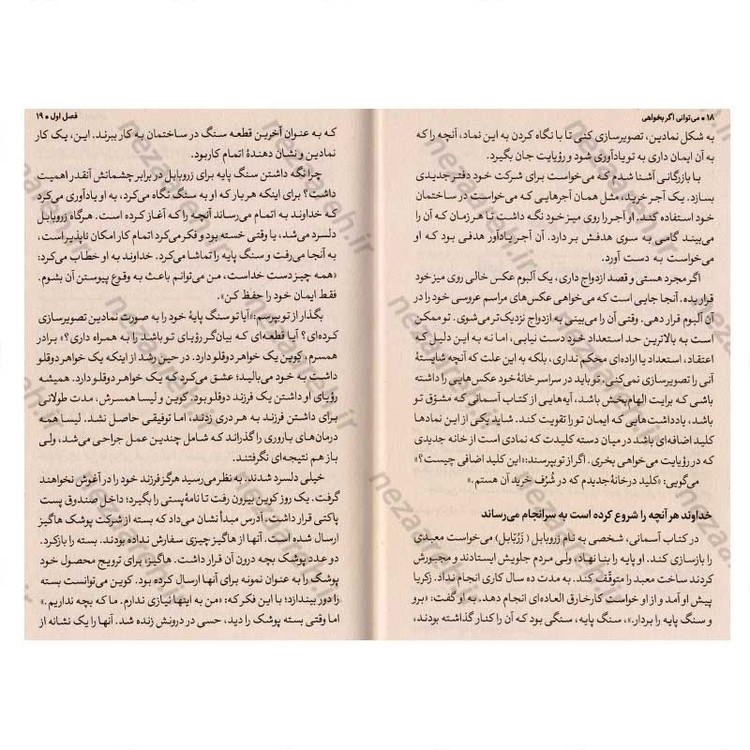 ۱۸ • می‌توانی اگر بخواهی
به شکل نمادین، تصویرسازی کنی تا با نگاه کردن به این نماد، آنچه را که
به آن ایمان داری به تو یادآوری شود و رؤیایت جان بگیرد.
با بازرگانی آشنا شدم که می‌خواست برای شرکت خود دفتر جدیدی
بسازد. یک آجر خرید، مثل همان آجرهایی که می‌خواست در ساختمان
خود استفاده کند. او آجر را روی میز خود نگه داشت تا هر زمان که آن را
می‌بیند گامی به سوی هدفش بر دارد. آن آجر یادآور هدفی بود که او
می‌خواست به دست آورد.
اگر مجرد هستی و قصد ازدواج داری، یک آلبوم عکس خالی روی میز خود
قرار بده. آنجا جایی است که می‌خواهی عکس‌های مراسم عروسی خود را در
آن آلبوم قرار دهی. وقتی آن را می‌بینی به ازدواج نزدیک‌تر می‌شوی. تو ممکن
است به بالاترین حد استعداد خود دست نیابی، اما نه به این دلیل که
اعتقاد، استعداد یا اراده‌ای محکم نداری، بلکه به این علت که آنچه شایستهٔ
آنی را تصویرسازی نمی‌کنی. تو باید در سراسر خانهٔ خود عکس‌هایی را داشته
باشی که برایت الهام‌بخش باشد، آیه‌هایی از کتاب آسمانی که مشوّق تو
باشد، یادداشت‌هایی که ایمان تو را تقویت کند. شاید یکی از این نمادها
کلید اضافه‌ای باشد در میان دسته کلیدت که نمادی است از خانه جدیدی
که در رؤیایت می‌خواهی بخری. اگر از تو بپرسند: «این کلید اضافی چیست؟»
می‌گویی: «کلید درِ خانهٔ جدیدم که در شُرُف خرید آن هستم.»
خداوند هر آنچه را شروع کرده است به سرانجام می‌رساند
در کتاب آسمانی، شخصی به نام زروبابل (زَرُبّابل) می‌خواست معبدی
را بازسازی کند. او پایه را بنا نهاد، ولی مردم جلویش ایستادند و مجبورش
کردند ساخت معبد را متوقّف کند. به مدت ده سال کاری انجام نداد. زکریا
پیش او آمد و از او خواست کار خارق العاده‌ای انجام دهد. به او گفت: «برو
و سنگ پایه را بردار.»، سنگ پایه، سنگی بود که آن را کنار گذاشته بودند،
فصل اول • ۱۹
که به عنوان آخرین قطعه سنگ در ساختمان به کار ببرند. این، یک کار
نمادین و نشان دهندهٔ اتمام کار بود.
چرا نگه داشتن سنگ پایه برای زروبابل در برابر چشمانش آنقدر اهمیت
داشت؟ برای اینکه هر بار که او به سنگ نگاه می‌کرد، به او یادآوری می‌کرد
که خداوند به اتمام می‌رساند آنچه را که آغاز کرده است. هرگاه زروبابل
دلسرد می‌شد، یا وقتی خسته بود و فکر می‌کرد اتمام کار امکان ناپذیر است،
به آنجا می‌رفت و سنگ پایه را تماشا می‌کرد. خداوند به او خطاب می‌کرد:
«همه چیز دست خداست، من می‌توانم باعث به وقوع پیوستن آن بشوم.
فقط ایمان خود را حفظ کن».
بگذار از تو بپرسم: «آیا تو سنگ پایهٔ خود را به صورت نمادین تصویرسازی
کرده‌ای؟ آیا قطعه‌ای که بیان‌گر رؤیای تو باشد را به همراه داری؟» برادر
همسرم، کوین یک خواهر دوقلو دارد. در حین رشد از اینکه یک خواهر دوقلو
داشت به خود می‌بالید؛ عشق می‌کرد که یک خواهر دوقلو دارد. همیشه
رؤیای او داشتن یک فرزند دوقلو بود. کوین و لیسا همسرش، مدت طولانی
برای داشتن فرزند به هر دری زدند، اما توفیقی حاصل نشد. لیسا همه
درمان‌های باروری را گذراند که شامل چندین عمل جراحی می‌شد، ولی
باز هم نتیجه‌ای نگرفتند.
خیلی دلسرد شدند. به نظر می‌رسید هرگز فرزند خود را در آغوش نخواهند
گرفت. یک روز کوین بیرون رفت تا نامهٔ پستی را بگیرد؛ داخل صندوق پست
پاکتی قرار داشت. آدرس مبدأ نشان می‌داد که بسته از شرکت پوشک هاگیز
ارسال شده است. آنها از هاگیز چیزی سفارش نداده بودند. بسته را باز کرد.
دو عدد پوشک بچه درون آن قرار داشت. هاگیز، برای ترویج محصول خود
پوشک را به عنوان نمونه برای آنها ارسال کرده بود. کوین می‌توانست بسته
را دور بیندازد؛ با این فکر که: «من به اینها نیازی ندارم. ما که بچه نداریم.»
اما وقتی بسته پوشک را دید، حسی در درونش زنده شد. آنها را یک نشانه از
nezaareh.ir